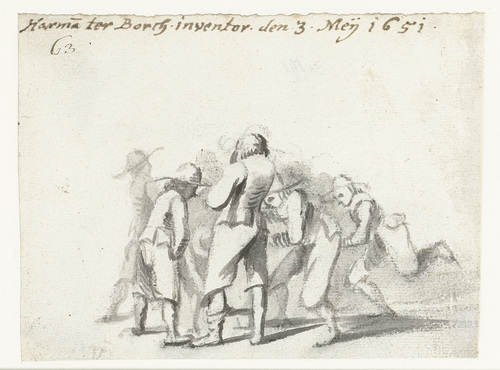 Harmã ter Borch. inventor. den 3. Meÿ 1651.
63